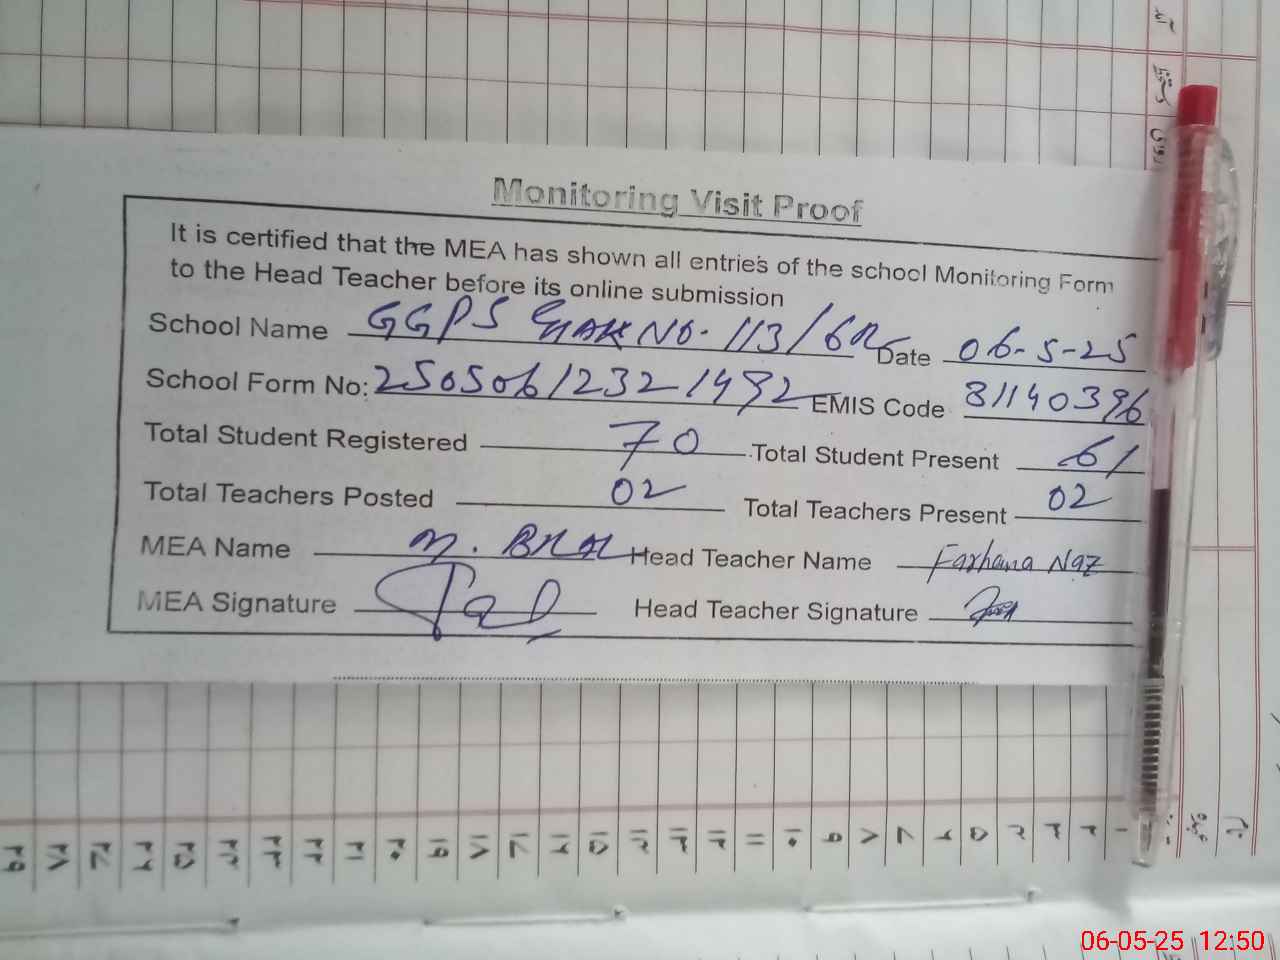 Monitoring Visit Proof
It is certified that the MEA has shown all entries of the school Monitoring Form
to the Head Teacher before its online submission
School Name GGPS CHAK NO. 113/6R Date 06-5-25
School Form No: 25050612321492 EMIS Code 31140396
Total Student Registered 70 Total Student Present 61
Total Teachers Posted 02 Total Teachers Present 02
MEA Name M. Head Teacher Name Farhana Naz
MEA Signature Head Teacher Signature
۱ ۲ ۳ ۴ ۵ ۶ ۷ ۸ ۹ ۱۰ ۱۱ ۱۲ ۱۳ ۱۴ ۱۵ ۱۶ ۱۷ ۱۸ ۱۹ ۲۰ ۲۱ ۲۲ ۲۳ ۲۴ ۲۵ ۲۶ ۲۷ ۲۸ ۲۹
06-05-25 12:50